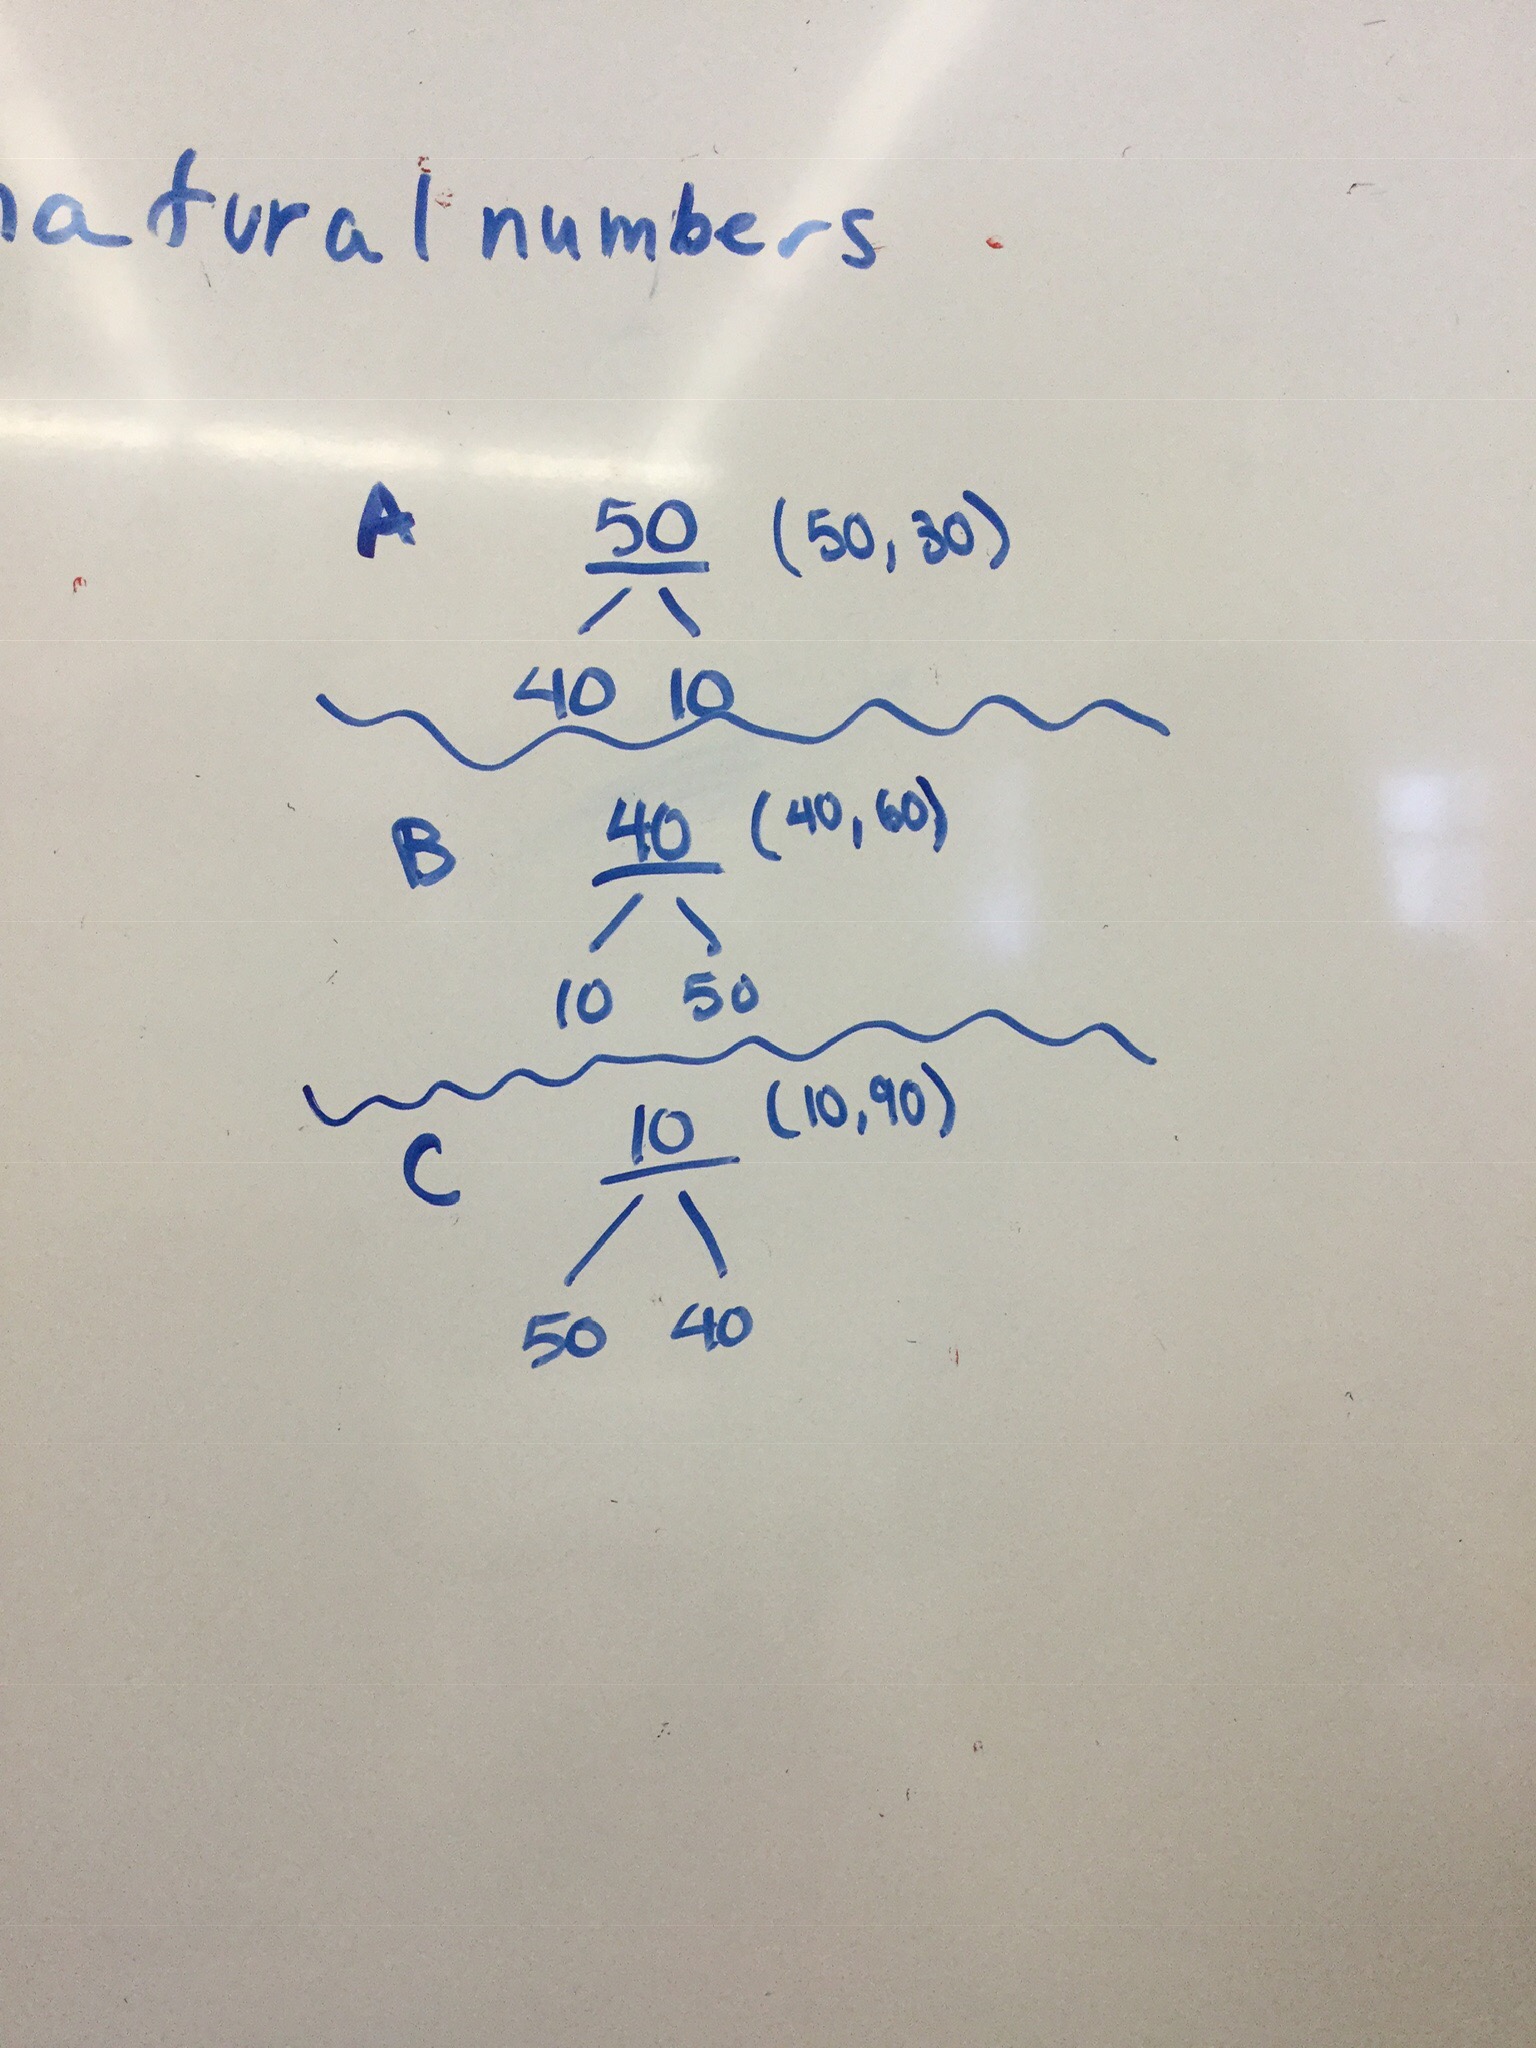 natural numbers
A 50 (50, 30)
40 10
B 40 (40, 60)
10 50
C 10 (10, 90)
50 40